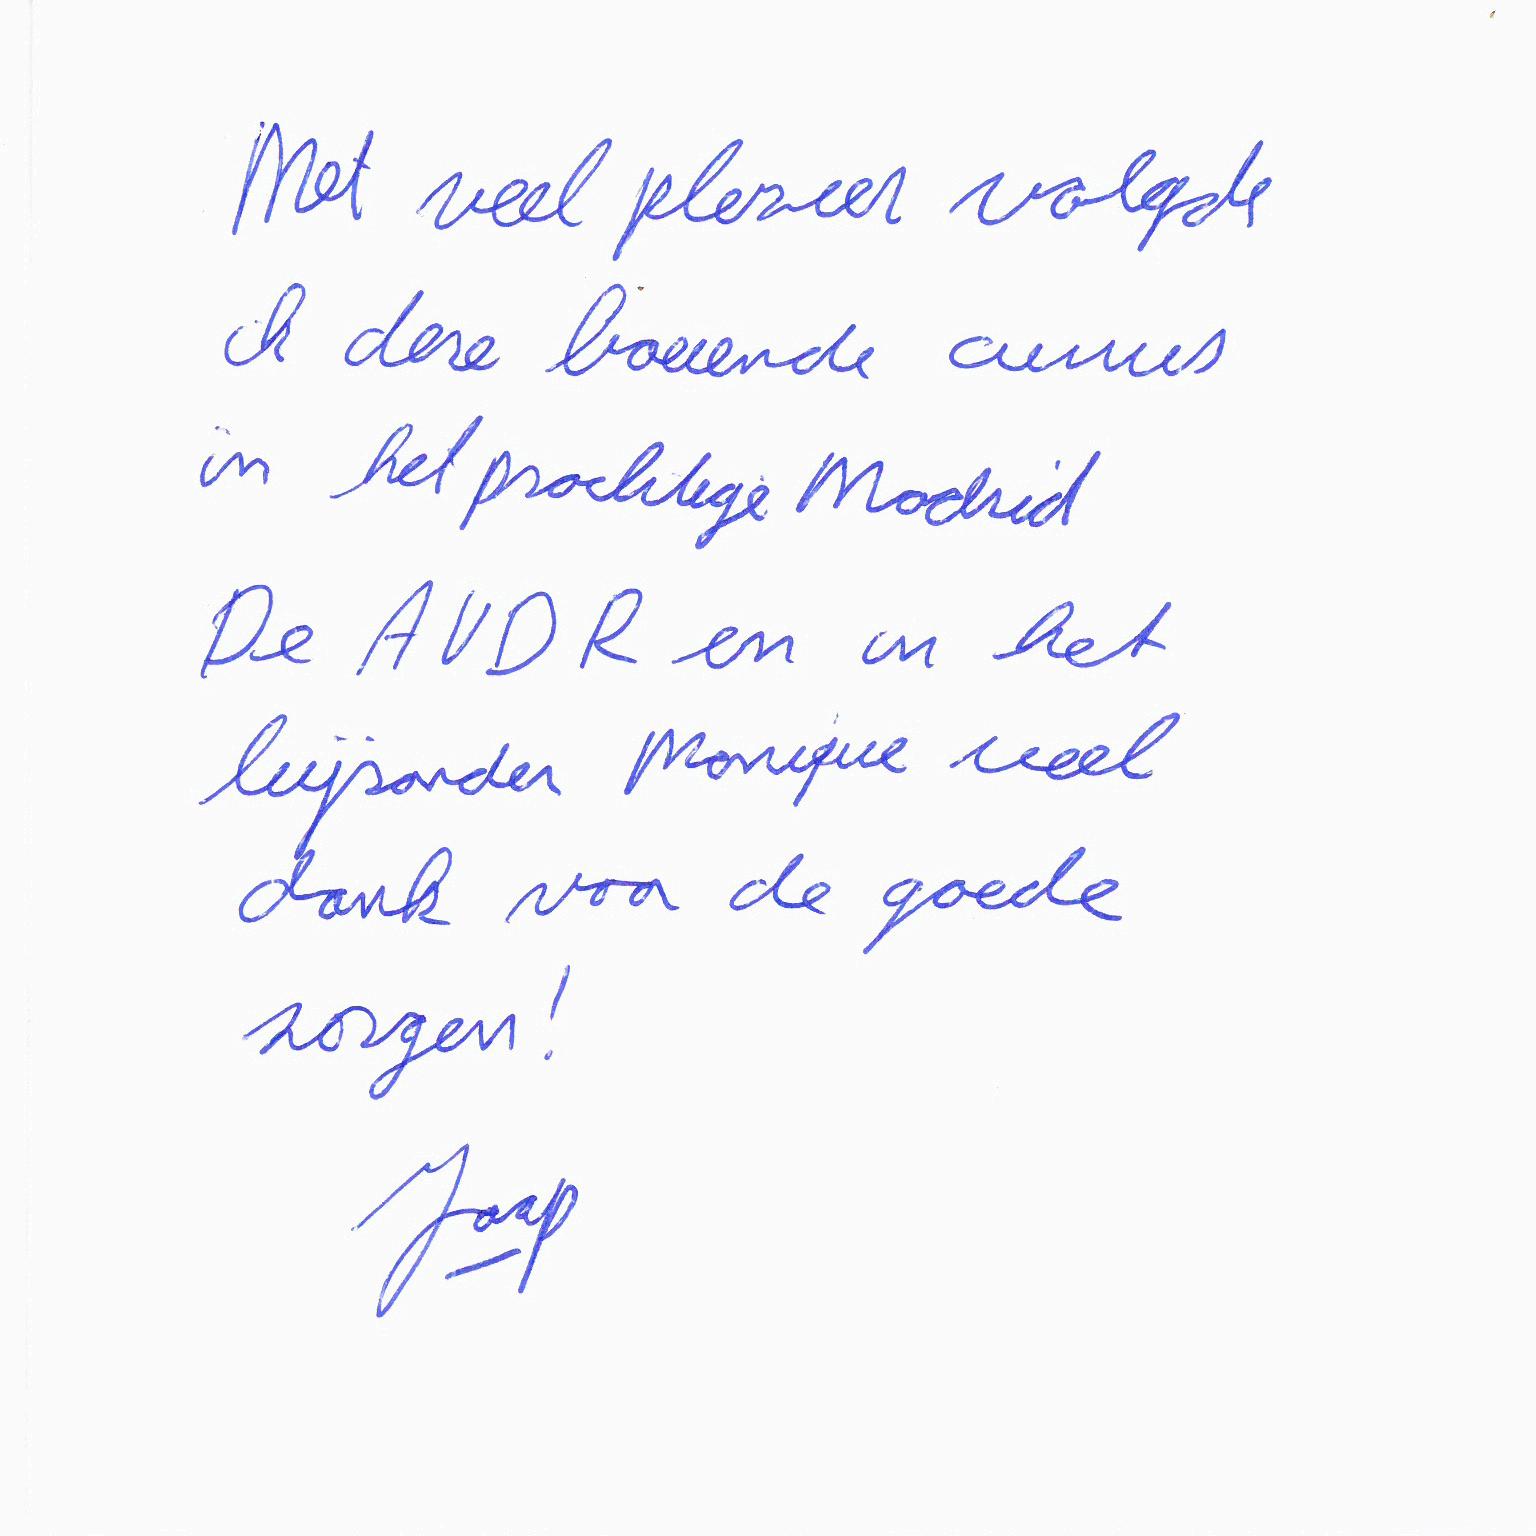 Met veel plezier volgde
ik deze boeiende cursus
in het prachtige Madrid
De AVDR en in het
bijzonder Monique veel
dank voor de goede
zorgen!
Jaap